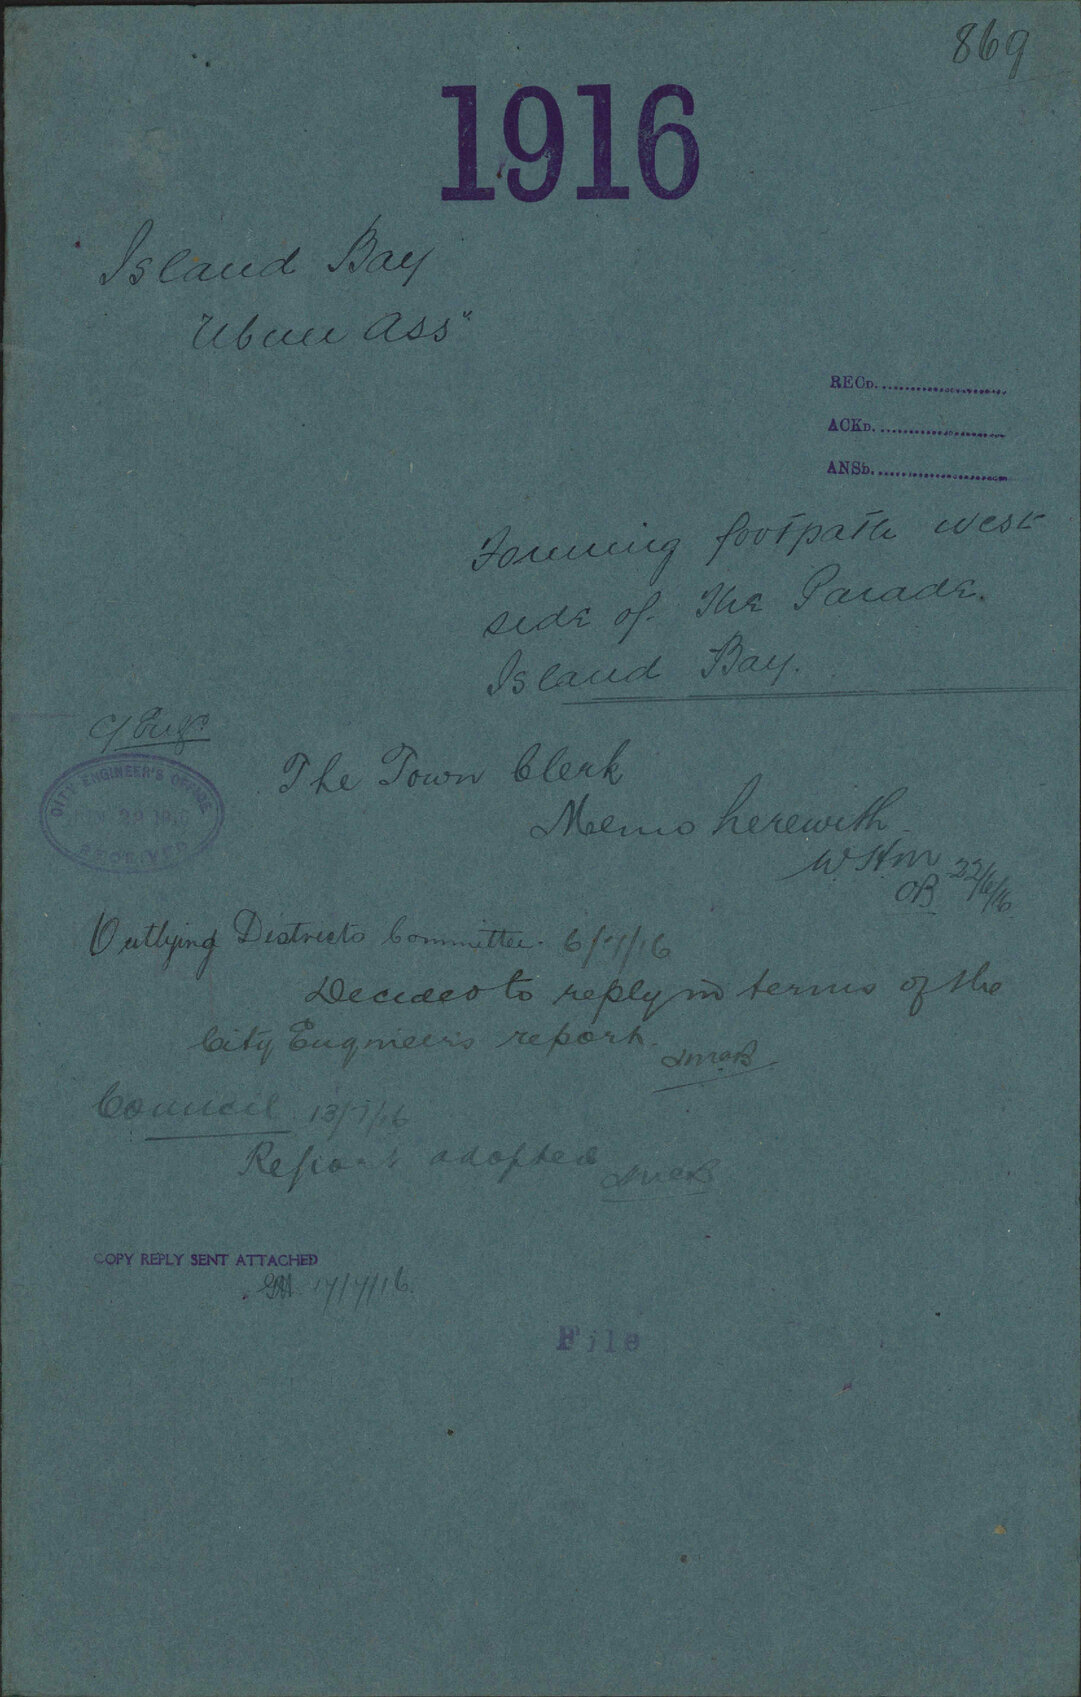 869
1916
Island Bay
Ass"
RECD.
ACKD.
ANSD.
Forming footpath west
side of The Parade.
Island Bay.
C/Eng.
CITY ENGINEER'S OFFICE
1916
RECEIVED
The Town Clerk
Memo herewith
W.H.M
OB 22/6/16
Outlying Districts Committee. 6/7/16
Decided to reply in terms of the
City Engineers report.
Council 13/7/16
Report adopted
COPY REPLY SENT ATTACHED
17/7/16.
File